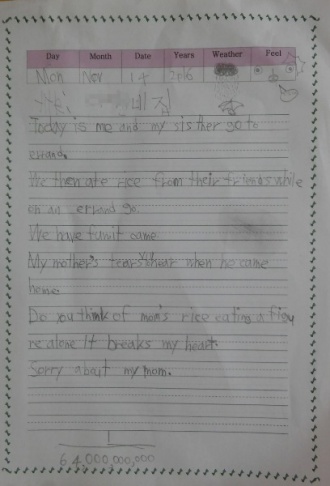 Day Month Date Years Weather Feel
Mon Nov 14 2016
네 집
Today is me and my sisther go to
errand.
We then ate rice from their friends while
on an errand go.
We have funit came
My mother's tears when no came
home.
Do you think of mom's rice eating a figu
re alone It breaks my heart.
Sorry about my mom.
1
64,000,000,000